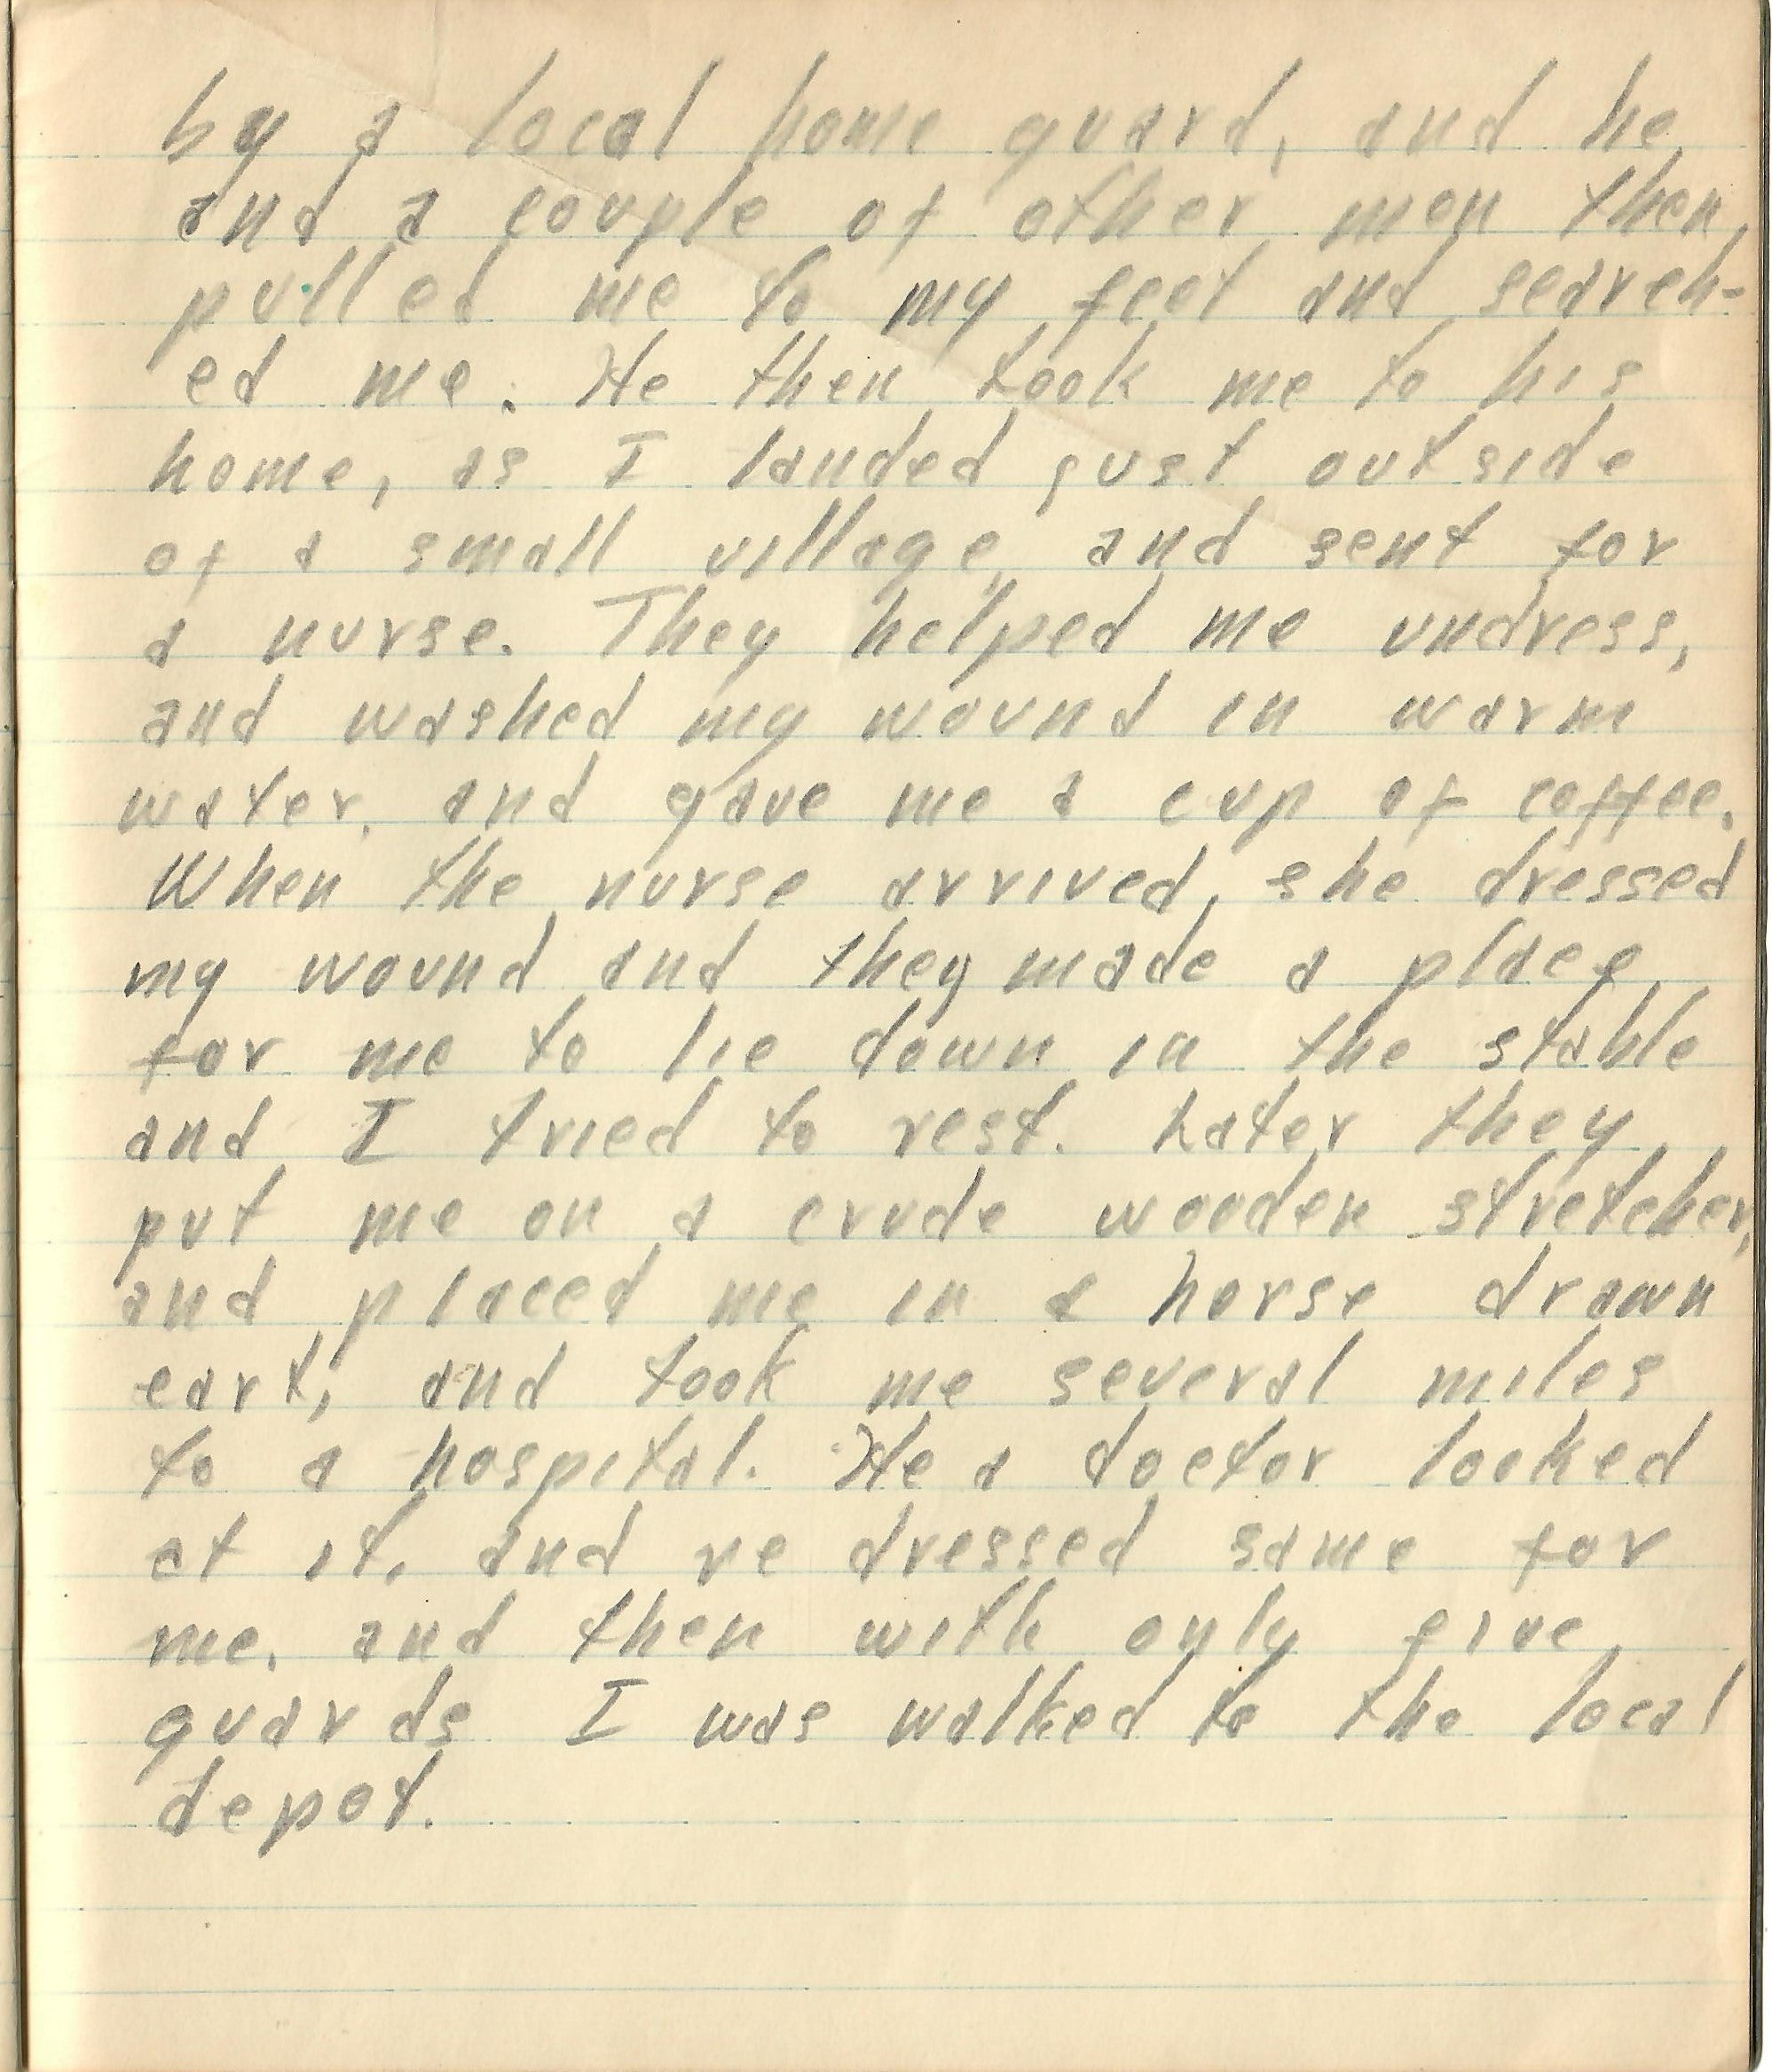 by a local home guard, and he
and a couple of other men then
pulled me to my feet and search-
ed me. He then took me to his
home, as I landed just outside
of a small village, and sent for
a nurse. They helped me undress,
and washed my wound in warm
water, and gave me a cup of coffee.
When the nurse arrived, she dressed
my wound and they made a place
for me to lie down in the stable
and I tried to rest. Later they
put me on a crude wooden stretcher,
and placed me in a horse drawn
cart, and took me several miles
to a hospital. He a doctor looked
at it, and re dressed same for
me, and then with only five
guards I was walked to the local
depot.